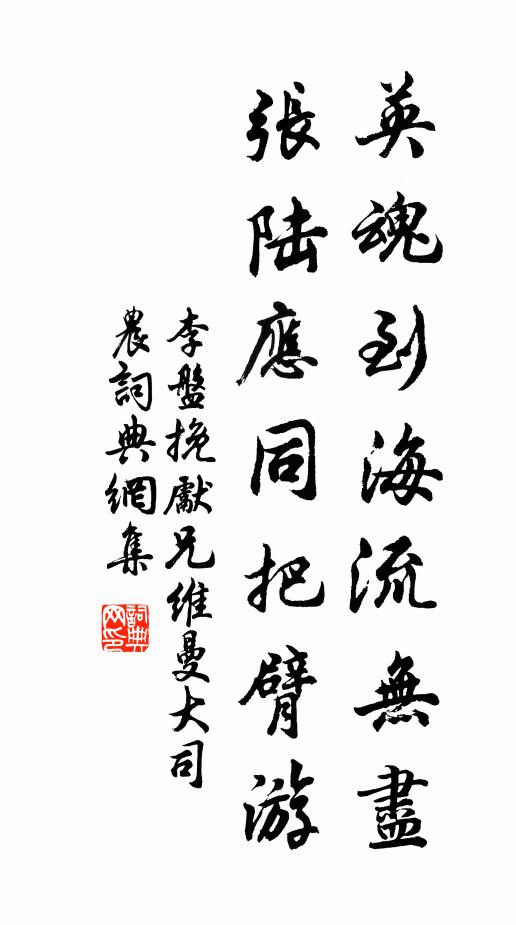 英魂到海流無盡
張陆應同把臂游
李盤挽獻兄維曼大司
農詞典網集
詞典
网印